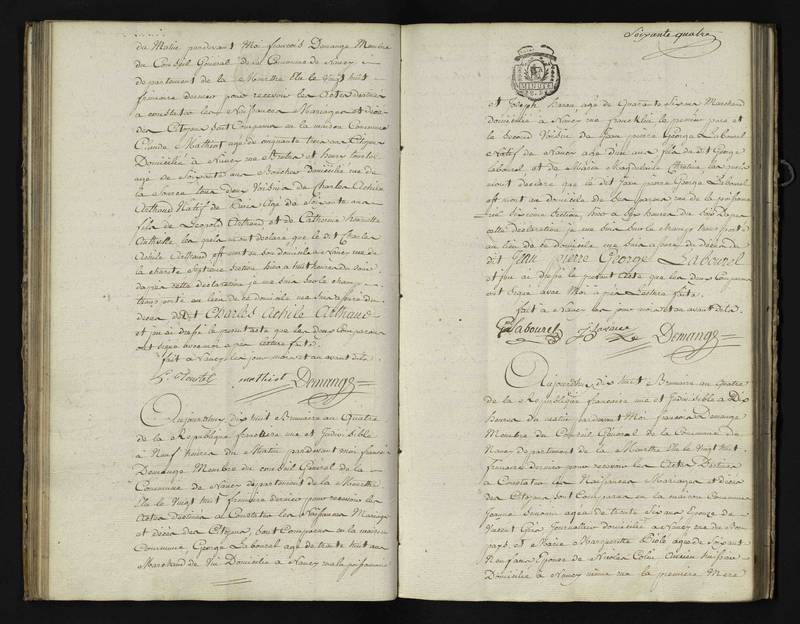 du Matin pardevant Moi françois Demange Membre
du Conseil General de la Commune de Nancy
departement de la Meurthe Elu le vingt huit
frimaire dernier pour recevoir les Actes Destinés
a constater les Naissances Mariages et décès
des Citoyens sont Comparus en la maison Commune
Claude Mathiot agé de cinquante trois ans
Domicilié à Nancy rue et
agé de Soixante ans domicilié rue de
la tous deux Voisins de Charles Achile
Arthaud Natif de Paris Agé de Soixante ans
fils de Leopold Arthaud et de Catherine Henriette
les quels mont déclaré que le dit Charles
Achile Arthaud est mort en son domicile à Nancy rue de
la charité Septieme Section hier à huit heures du Soir
dapres cette déclaration je me suis sur le champ
transporté au lieu de ce domicile me suis assuré du
décès dudit Charles Achile Arthaud
et jai ai dressé le present acte que les deux Comparus
ont signé avec moi a près lecture faite.
fait à Nancy les jour mois et an avant dits
Mathiot Demange
Aujourdhui dix huit Brumaire an Quatre
de la République francoise une et Indivisible
à Neuf heures du Matin pardevant moi francois
Demange Membre du conseil General de la
Commune de Nancy département de la Meurthe
Elu le Vingt huit frimaire dernier pour recevoir les
Actes Destinés a Constater les Naissances Mariages
et décès des Citoyens, sont Comparus en la maison
Commune, George Labourel agé de trente huit ans
Marchand de Vin Domicilié à Nancy rue de la poissonnerie
Soixante quatre
et Joseph agé de Quarante Six ans Marchand
Domicilié à Nancy rue franklin le premier pere et
le Second Voisin de Jean pierre George Labourel
Natif de Nancy agé dun an fils du dit George
Labourel et de Marie Magdeleine les quels
mont declaré que le dit Jean pierre George Labourel
est mort au domicile de Son pere rue de la poissonnerie
Section, hier à heures du Soir Dapres
cette déclaration je me Suis Sur le champ transporté
au lieu de ce domicile me suis assuré du décès du
dit Jean pierre George Labourel
et jai ai dressé le présent Acte que les deux Comparus
ont Signé avec Moi a près Lecture faite.
fait à Nancy les jour mois et an avant dits
G Labourel Demange
Aujourdhui dix huit Brumaire an quatre
de la Republique francoise une et Indivisible à Dix
heures du matin pardevant Moi francois Demange
Membre du Conseil Général de la Commune de
Nancy departement de la Meurthe Elu le Vingt huit
frimaire dernier pour recevoir les Actes Destinés
à Constater les Naissances Mariages et décès
des Citoyens sont Comparus en la maison Commune
Jeanne agée de trente Six ans Epouze de
Journalier domicilié à Nancy rue du bon
pays, et Marie Marguerite agée de Soixante
Neuf ans Epouze de Nicolas Colin
Domicilié à Nancy même rue la premiere Mere